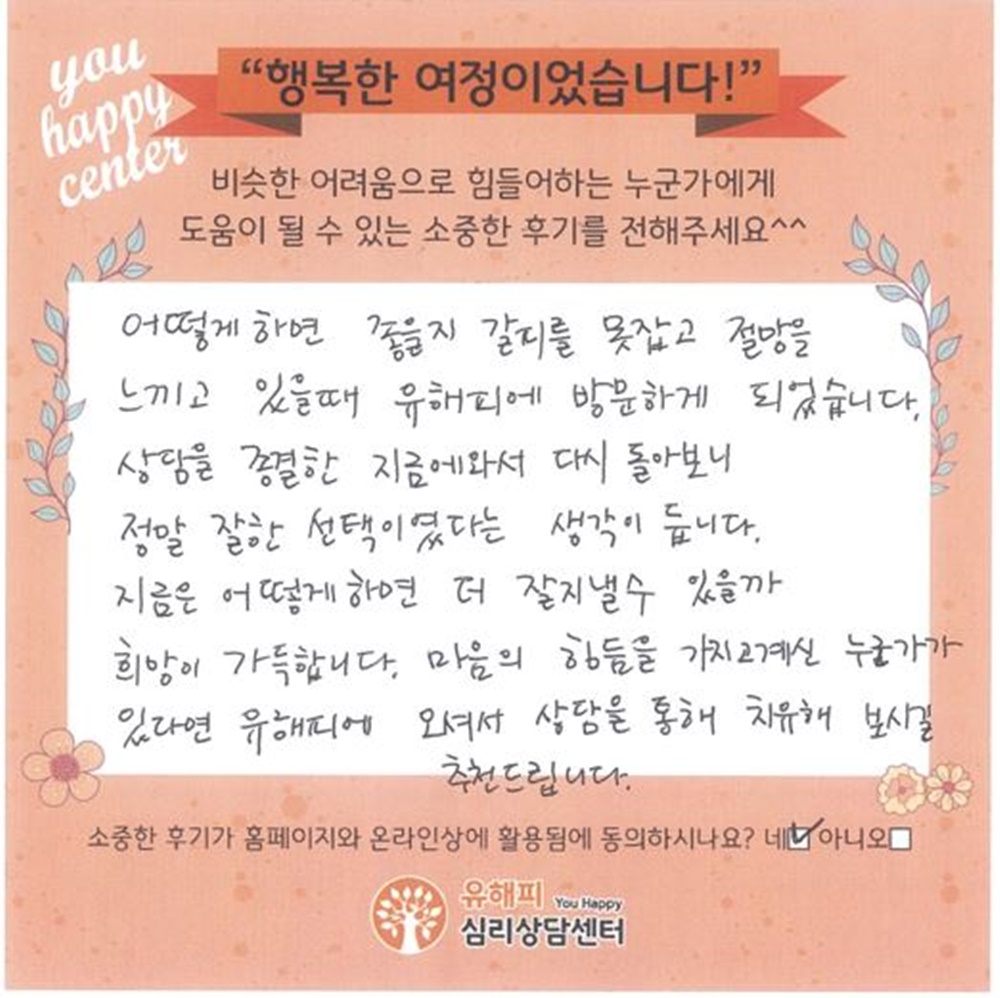 you
happy
center
“행복한 여정이었습니다!”
비슷한 어려움으로 힘들어하는 누군가에게
도움이 될 수 있는 소중한 후기를 전해주세요^^
어떻게 하면 좋을지 갈피를 못잡고 절망을
느끼고 있을때 유해피에 방문하게 되었습니다.
상담을 종결한 지금에와서 다시 돌아보니
정말 잘한 선택이였다는 생각이 듭니다.
지금은 어떻게 하면 더 잘지낼수 있을까
희망이 가득합니다. 마음의 힘듦을 가지고계신 누군가가
있다면 유해피에 오셔서 상담을 통해 치유해 보시길
추천드립니다.
소중한 후기가 홈페이지와 온라인상에 활용됨에 동의하시나요? 네☑ 아니오☐
유해피 You Happy
심리상담센터